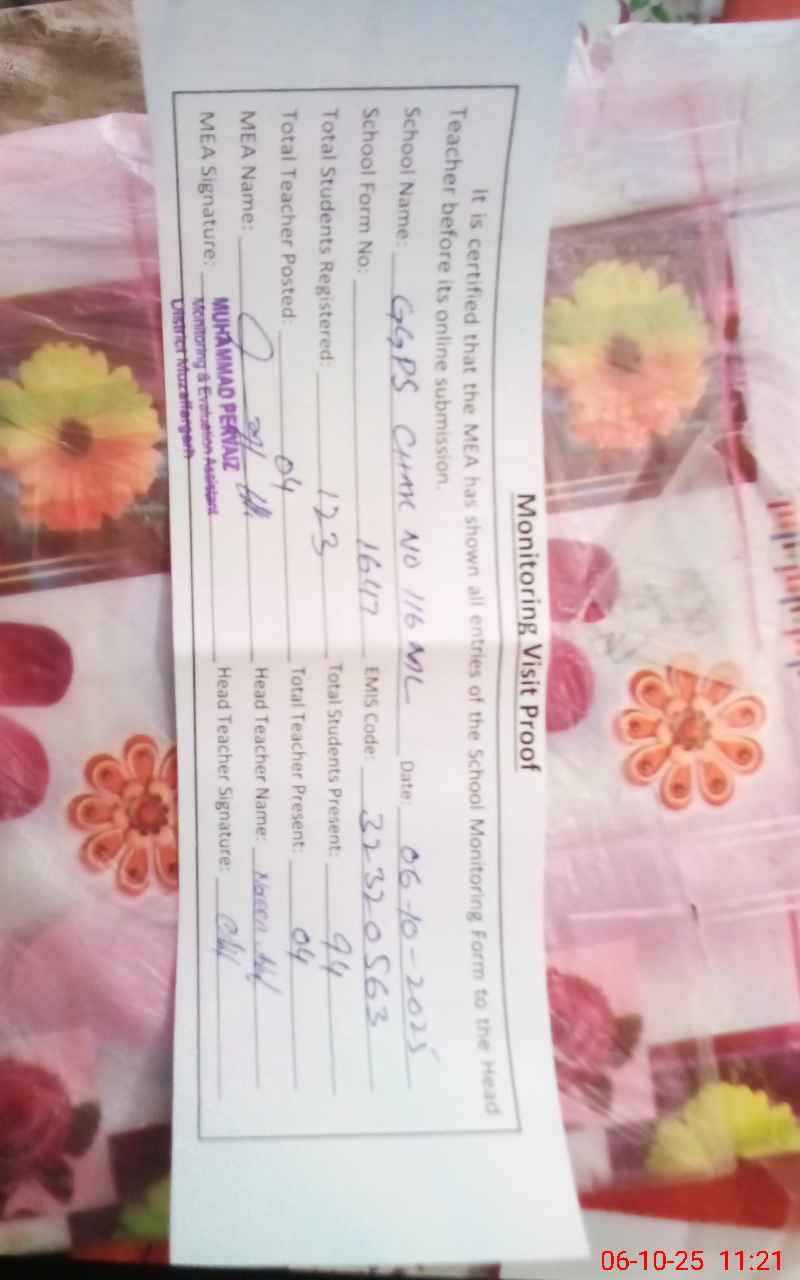 Monitoring Visit Proof
It is certified that the MEA has shown all entries of the School Monitoring Form to the Head
Teacher before its online submission.
School Name: GGPS Chak NO 116 ML Date: 06-10-2025
School Form No: 1647 EMIS Code: 32320563
Total Students Registered: 123 Total Students Present: 94
Total Teacher Posted: 04 Total Teacher Present: 04
MEA Name: Head Teacher Name:
MEA Signature: Head Teacher Signature:
MUHAMMAD PERVAIZ
Monitoring & Evaluation Assistant
District Muzaffargarh
06-10-25 11:21